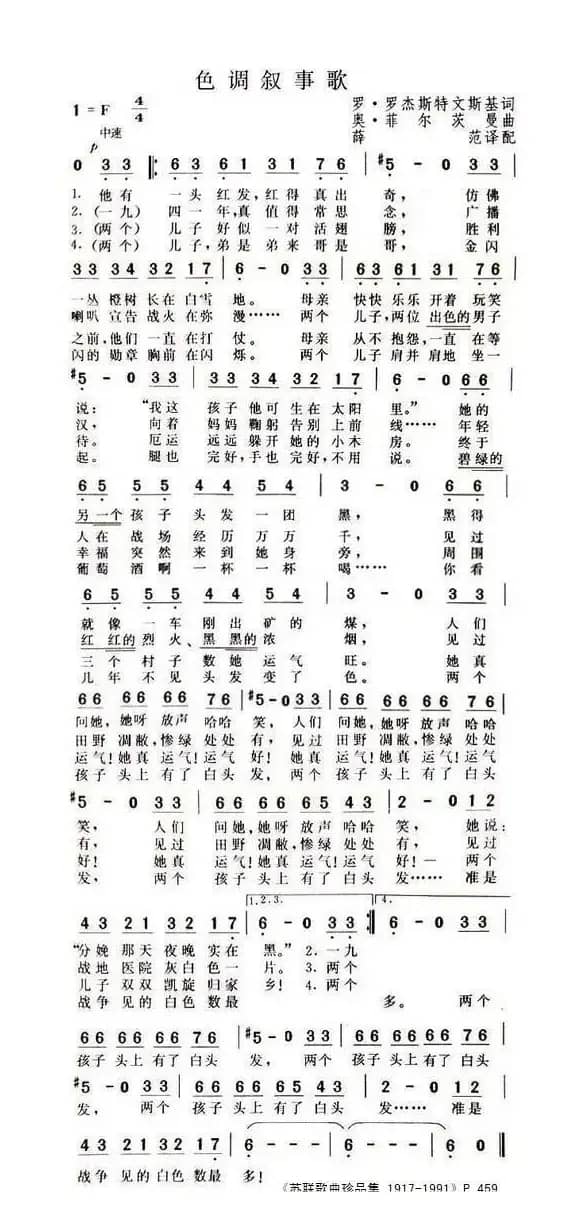 色调叙事歌
1=F 4/4
中速
p
罗·罗杰斯特文斯基词
奥·菲尔茨曼曲
薛范译配
0 33 ‖: 63 61 31 76 | #5 - 0 33 |
1. 他有 一头红发,红得真出 奇, 仿佛
2.(一九)四一年,真值得常思 念, 广播
3.(两个)儿子好似一对活翅 膀, 胜利
4.(两个)儿子,弟是弟来哥是 哥, 金闪
33 34 32 17 | 6 - 0 33 | 63 61 31 76 |
一丛橙树长在白雪 地。 母亲 快快乐乐开着玩笑
喇叭宣告战火在弥 漫…… 两个 儿子,两位出色的男子
之前,他们一直在打 仗。 母亲 从不抱怨,一直在等
闪的勋章胸前在闪 烁。 两个 儿子肩并肩地坐一
#5 - 0 33 | 33 34 32 17 | 6 - 0 66 |
说: “我这 孩子他可生在太阳 里。”她的
汉, 向着 妈妈鞠躬告别上前 线…… 年轻
待。 厄运 远远躲开她的小木 房。 终于
起。 腿也 完好,手也完好,不用 说。 碧绿的
65 55 54 54 | 3 - 0 66 |
另一个孩子头发一团 黑, 黑得
人在战场经历万万 千, 见过
幸福突然来到她身 旁, 周围
葡萄酒啊一杯一杯 喝…… 你看
65 55 54 54 | 3 - 0 33 |
就像一车刚出矿的 煤, 人们
红红的烈火、黑黑的浓 烟, 见过
三个村子数她运气 旺。 她真
几年不见头发变了 色。 两个
66 66 66 76 | #5 - 0 33 | 66 66 66 76 |
问她,她呀放声哈哈 笑, 人们 问她,她呀放声哈哈
田野凋敝,惨绿处处 有, 见过 田野凋敝,惨绿处处
运气!她真运气!运气 好! 她真 运气!她真运气!运气
孩子头上有了白头 发, 两个 孩子头上有了白头
#5 - 0 33 | 66 66 65 43 | 2 - 0 12 |
笑, 人们 问她,她呀放声哈哈 笑, 她说:
有, 见过 田野凋敝,惨绿处处 有, 见过
好! 她真 运气!她真运气!运气 好!— 两个
发, 两个 孩子头上有了白头 发…… 准是
1.2.3. 4.
43 21 32 17 | 6 - 0 33 :‖ 6 - 0 33 |
“分娩那天夜晚实在 黑。” 2. 一九
战地医院灰白色一 片。 3. 两个
儿子双双凯旋归家 乡! 4. 两个
战争见的白色数最 多。 两个
66 66 66 76 | #5 - 0 33 | 66 66 66 76 |
孩子头上有了白头 发, 两个 孩子头上有了白头
#5 - 0 33 | 66 66 65 43 | 2 - 0 12 |
发, 两个 孩子头上有了白头 发…… 准是
43 21 32 17 | 6 - - - | 6 - - - | 6 0 ‖
战争见的白色数最 多!
《苏联歌曲珍品集 1917-1991》P 459